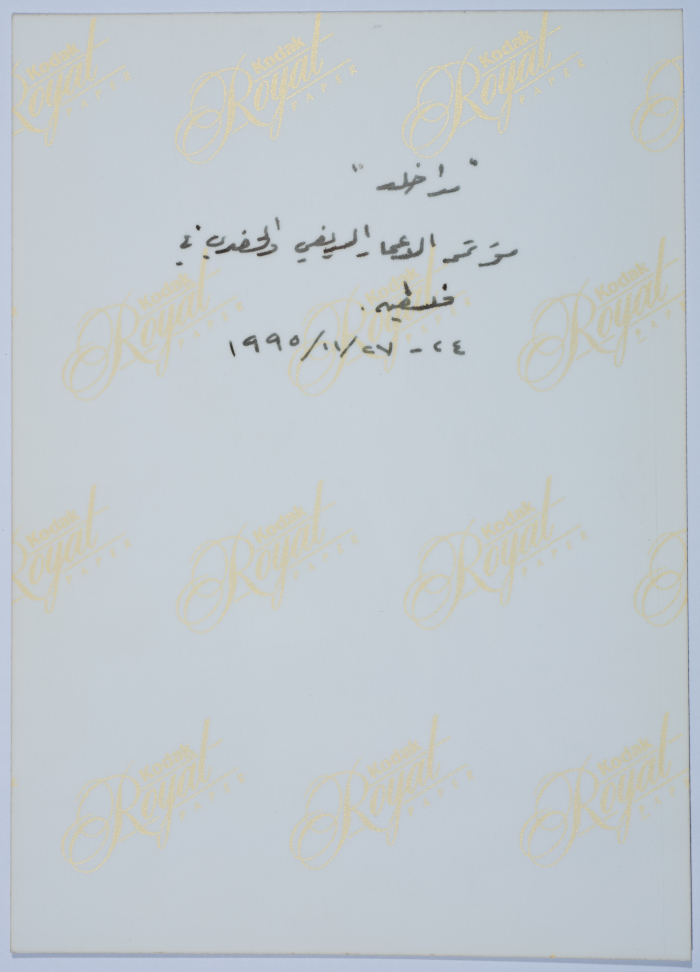 Kodak Royal PAPER
Kodak Royal PAPER
Kodak Royal PAPER
مؤتمر الاعمار الريفي والحضري في
فلسطين.
٢٤ - ٢٧/١١/١٩٩٥
Kodak Royal PAPER
Kodak Royal PAPER
Kodak Royal PAPER
Kodak Royal PAPER
Kodak Royal PAPER
Kodak Royal PAPER
Kodak Royal PAPER
Kodak Royal PAPER
Kodak Royal PAPER